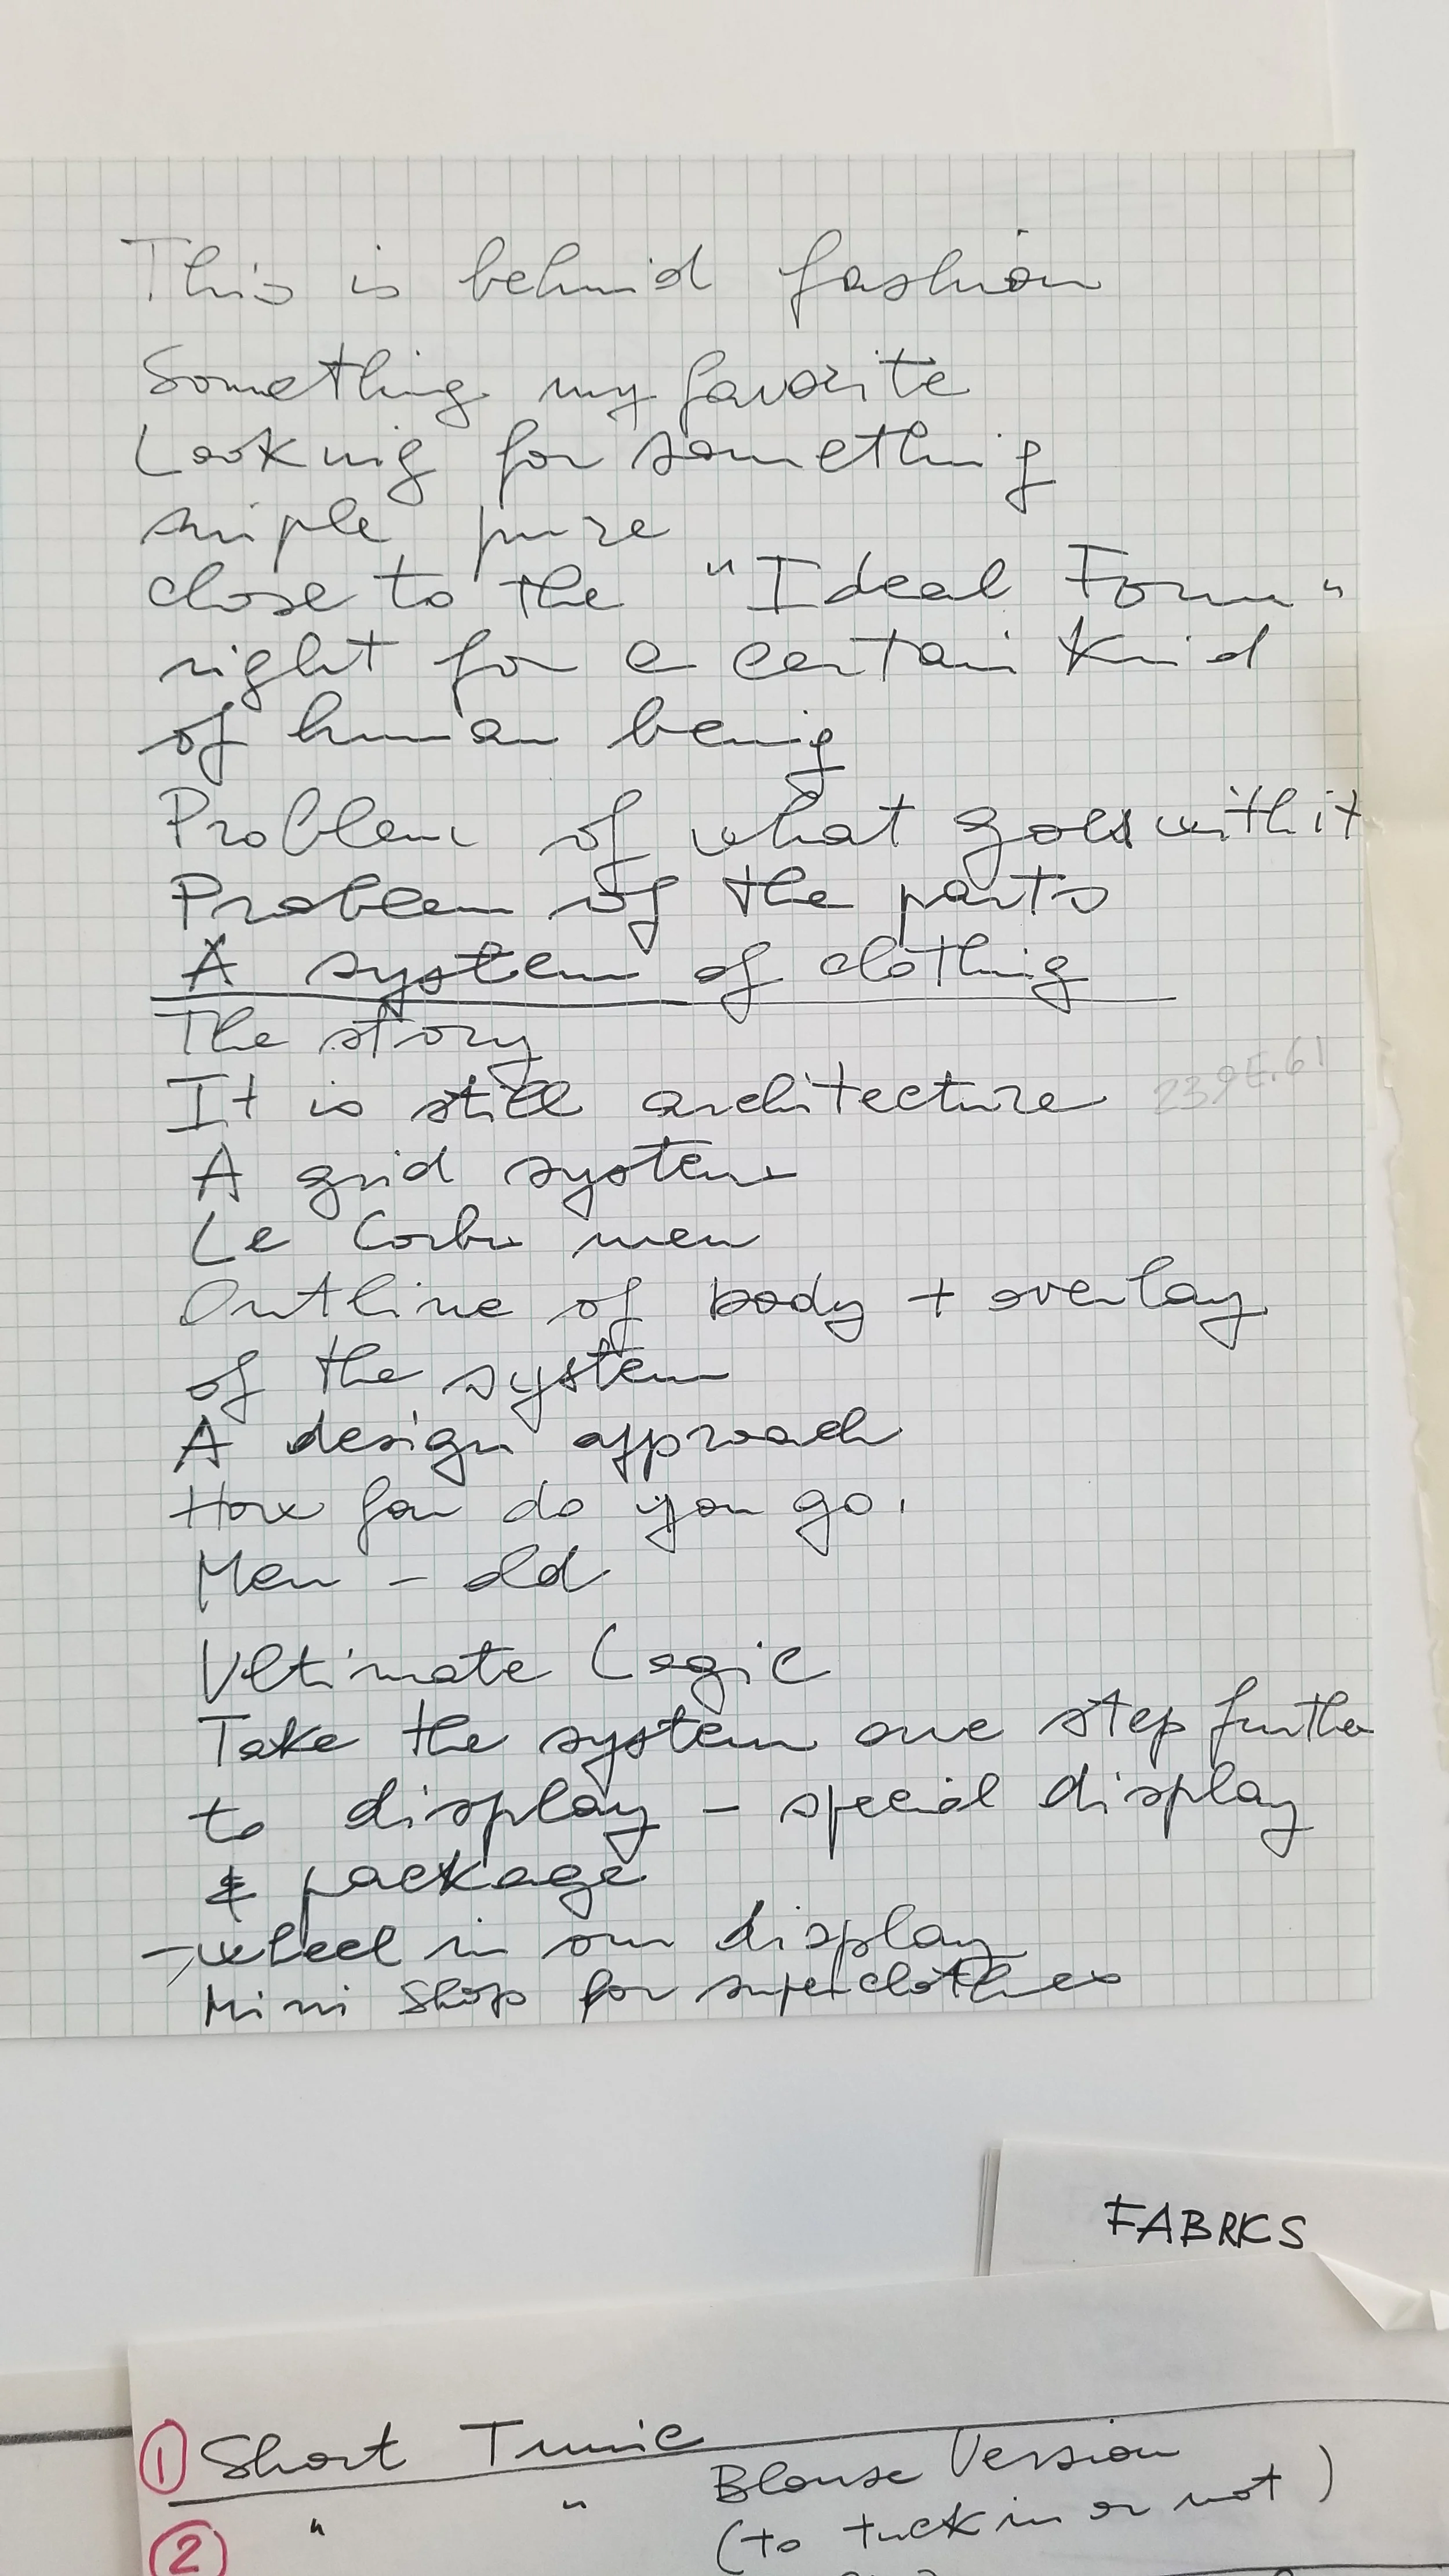 This is behind fashion
Something my favorite
Looking for something
simple pure
close to the "Ideal Form"
right for a certain kind
of human being
Problem of what goes with it
Problem of the parts
A system of clothing
The story
It is still architecture
239E.61
A grid system
Le Corbu men
Outline of body + overlay
of the system
A design approach
How far do you go.
Men - old
Ultimate Logic
Take the system one step further
to display - special display
& package
- wheel in our display
Mini Shop for superclothes
FABRICS
① Short Tunic
Blouse Version
② " "
(to tuck in or not)